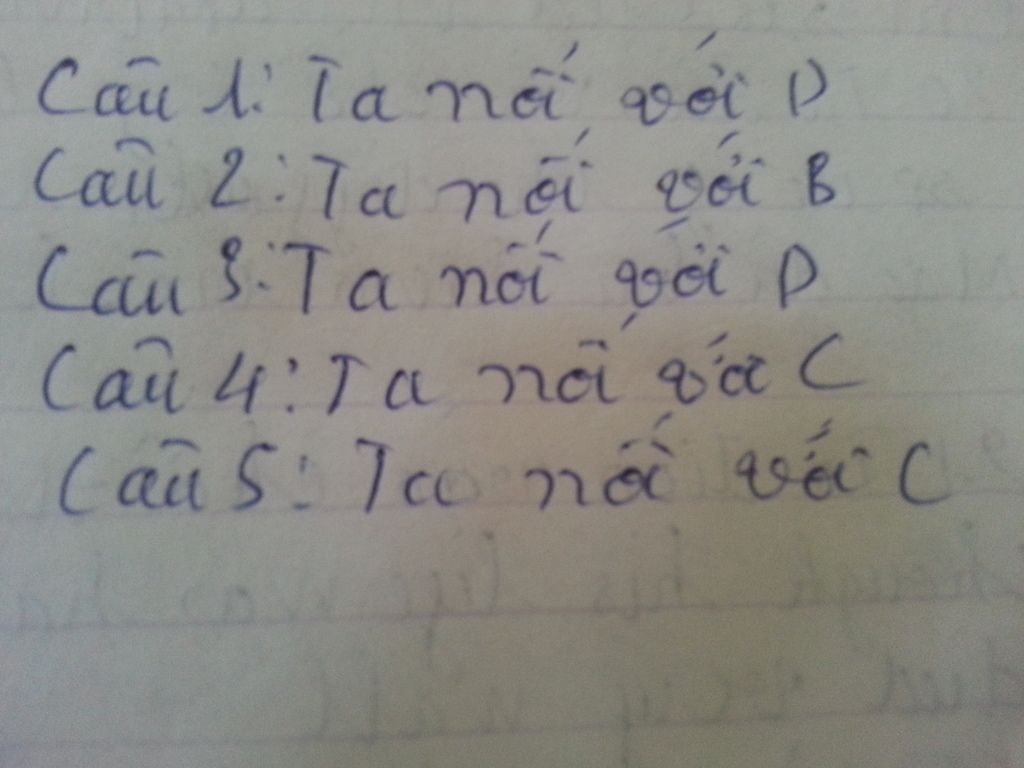 Câu 1: Ta nối với D
Câu 2: Ta nối với B
Câu 3: Ta nối với D
Câu 4: Ta nối với C
Câu 5: Ta nối với C